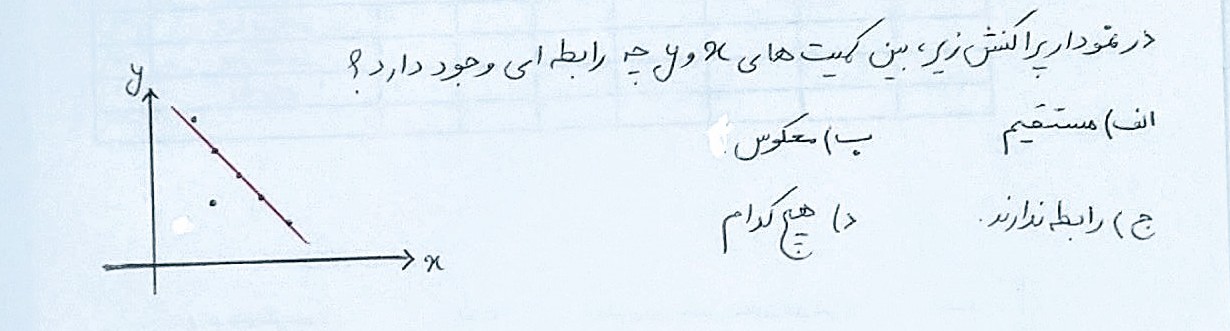 در نمودار پراکنش زیر، بین کمیت های x و y چه رابطه ای وجود دارد؟
الف) مستقیم ب) معکوس
ج) رابطه ندارند. د) هیچ کدام
y
x